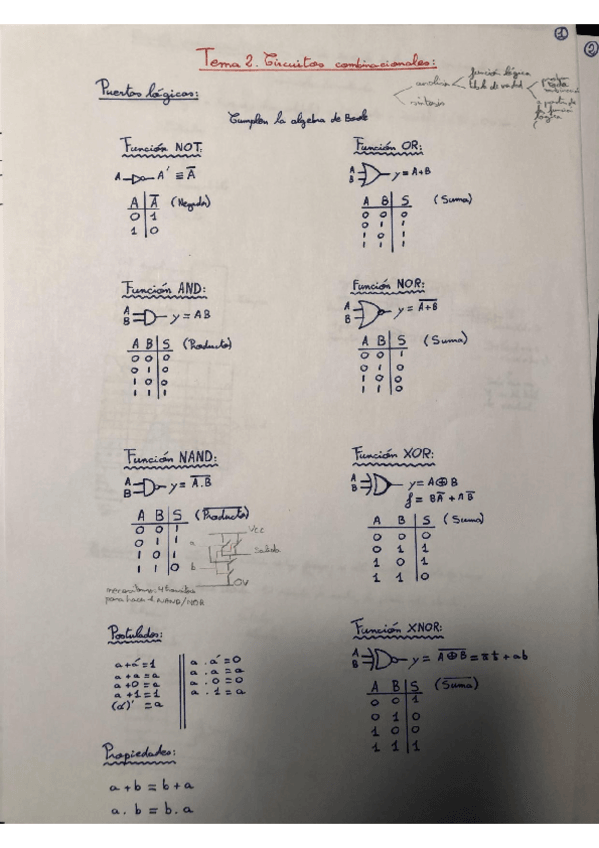 1
2
Tema 2. Circuitos combinacionales:
analisis
función lógica
tabla de verdad
síntesis
Puertas lógicas:
Cumplen la algebra de Boole
Función NOT:
A A' ≡ A̅
A A̅ (Negada)
0 1
1 0
Función OR:
A
B y = A+B
A B S (Suma)
0 0 0
0 1 1
1 0 1
1 1 1
Función AND:
A
B y = AB
A B S (Producto)
0 0 0
0 1 0
1 0 0
1 1 1
Función NOR:
A
B y = A̅+̅B̅
A B S (Suma)
0 0 1
0 1 0
1 0 0
1 1 0
Función NAND:
A
B y = A̅.̅B̅
A B S (P̅r̅o̅d̅u̅c̅t̅o̅)
0 0 1
0 1 1
1 0 1
1 1 0
Vcc
a
Salida
b
0V
para hacer el NAND/NOR
Función XOR:
A
B y = A⊕B
f = BA̅ + AB̅
A B S (Suma)
0 0 0
0 1 1
1 0 1
1 1 0
Postulados:
a+a'=1
a+a=a
a+0=a
a+1=1
(a')' = a
a . a'=0
a . a=a
a . 0=0
a . 1=a
Función XNOR:
A
B y = A̅⊕̅B̅ = a̅b̅ + ab
A B S (S̅u̅m̅a̅)
0 0 1
0 1 0
1 0 0
1 1 1
Propiedades:
a + b = b + a
a . b = b . a